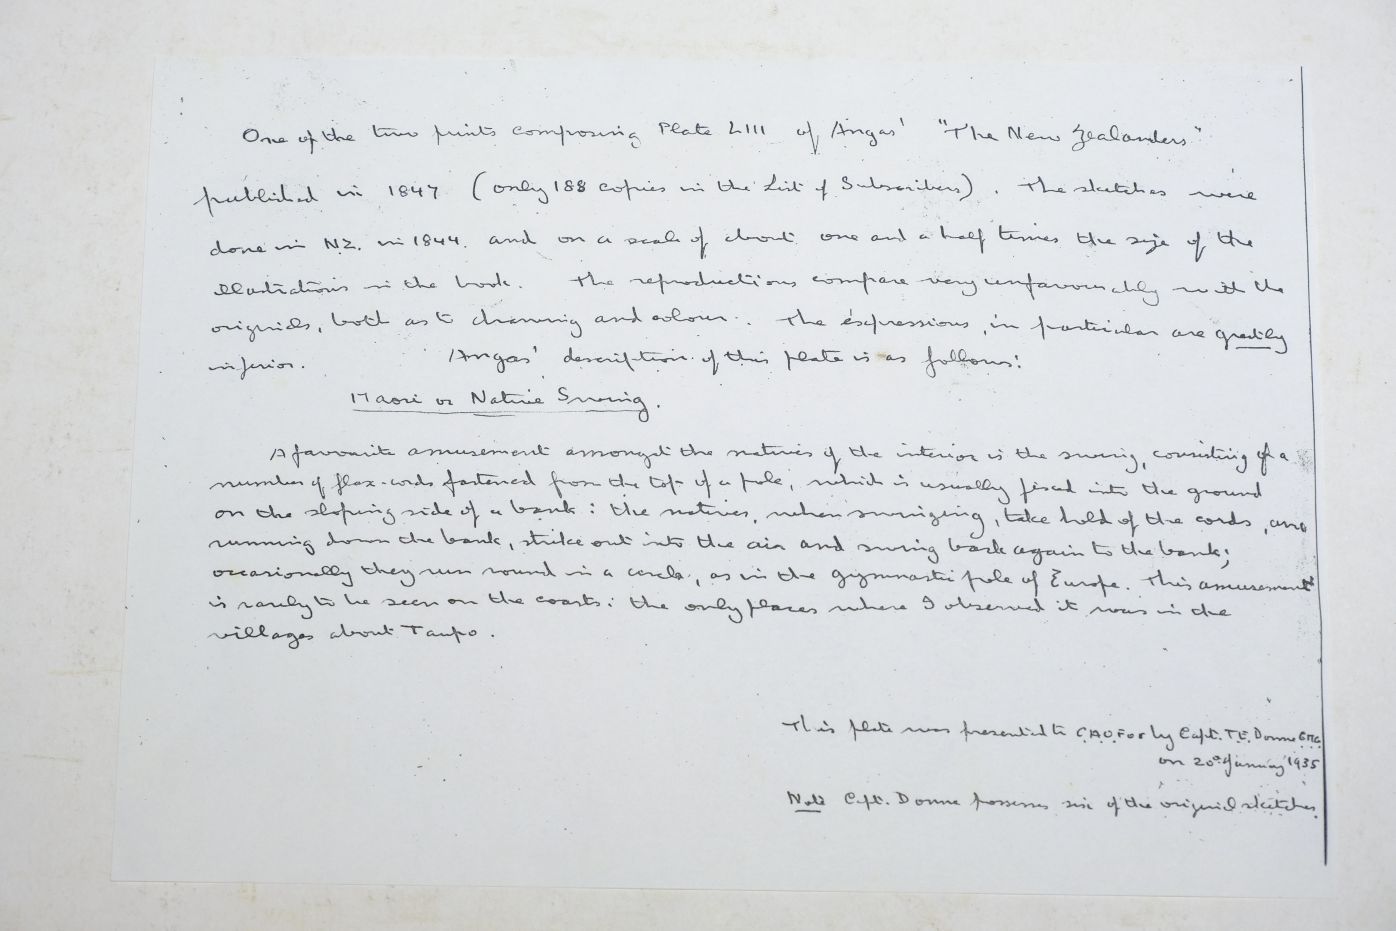 One of the two prints composing Plate LIII of Angas' "The New Zealanders"
published in 1847 (only 188 copies in the List of Subscribers). The sketches were
done in NZ. in 1844. and on a scale of about one and a half times the size of the
illustrations in the book. The reproductions compare very unfavourably with the
originals, both as to drawing and colour. The expressions, in particular are greatly
inferior. Angas' description of this plate is as follows:
Maori or Native Swing.
A favourite amusement amongst the natives of the interior is the swing, consisting of a
number of flax-cords fastened from the top of a pole, which is usually fixed into the ground
on the sloping side of a bank: the natives, when swinging, take hold of the cords, and
running down the bank, strike out into the air and swing back again to the bank;
occasionally they run round in a circle, as in the gymnastic pole of Europe. This amusement
is rarely to be seen on the coasts: the only places where I observed it was in the
villages about Taupo.
This plate was presented to by Capt. T.E. Donne CMG
on 20th January 1935
Note Capt. Donne possesses six of the original sketches.